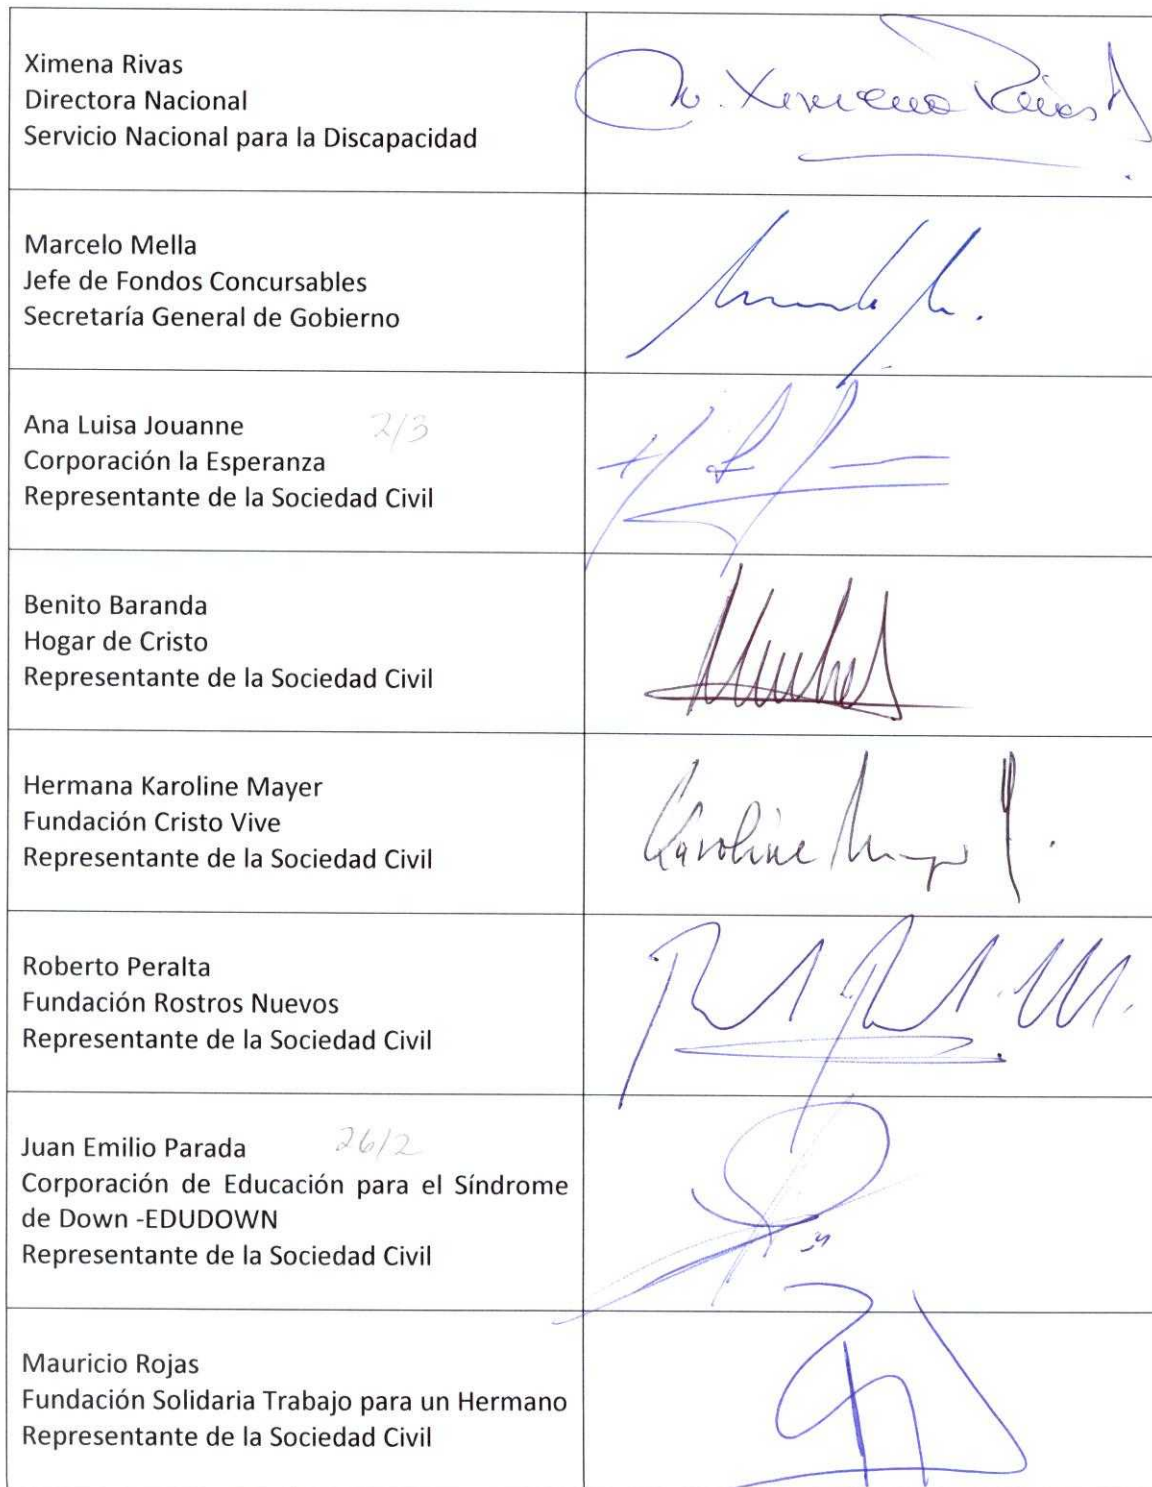 Ximena Rivas
Directora Nacional
Servicio Nacional para la Discapacidad
Marcelo Mella
Jefe de Fondos Concursables
Secretaría General de Gobierno
Ana Luisa Jouanne 2/3
Corporación la Esperanza
Representante de la Sociedad Civil
Benito Baranda
Hogar de Cristo
Representante de la Sociedad Civil
Hermana Karoline Mayer
Fundación Cristo Vive
Representante de la Sociedad Civil
Karoline
Roberto Peralta
Fundación Rostros Nuevos
Representante de la Sociedad Civil
Juan Emilio Parada 26/2
Corporación de Educación para el Síndrome
de Down -EDUDOWN
Representante de la Sociedad Civil
Mauricio Rojas
Fundación Solidaria Trabajo para un Hermano
Representante de la Sociedad Civil